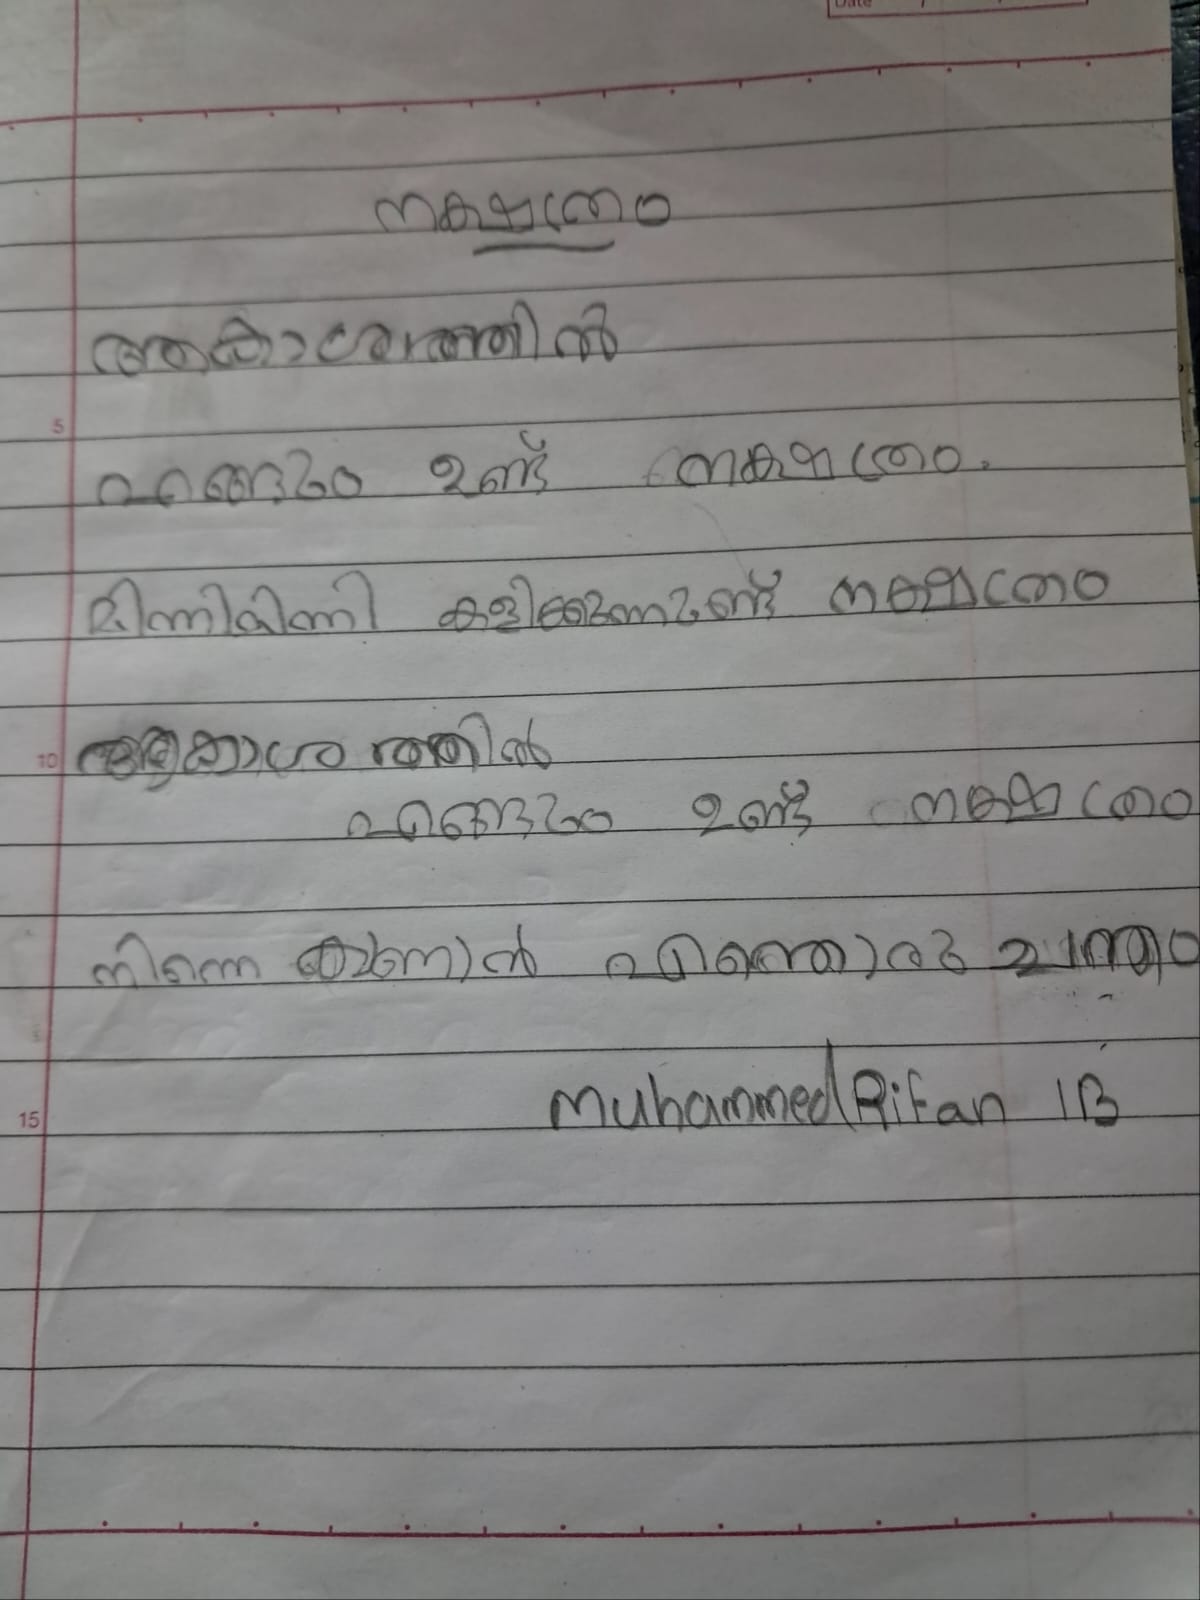 Date
നക്ഷത്രം
ആകാശത്തിൽ
എങ്ങും ഉണ്ട് നക്ഷത്രം.
മിന്നിമിന്നി കളിക്കുന്നുണ്ട് നക്ഷത്രം
ആകാശത്തിൽ
എങ്ങും ഉണ്ട് നക്ഷത്രം
നിന്നെ കാണാൻ എന്തൊരു ചന്തം
Muhammed Rifan 1B
5
10
15